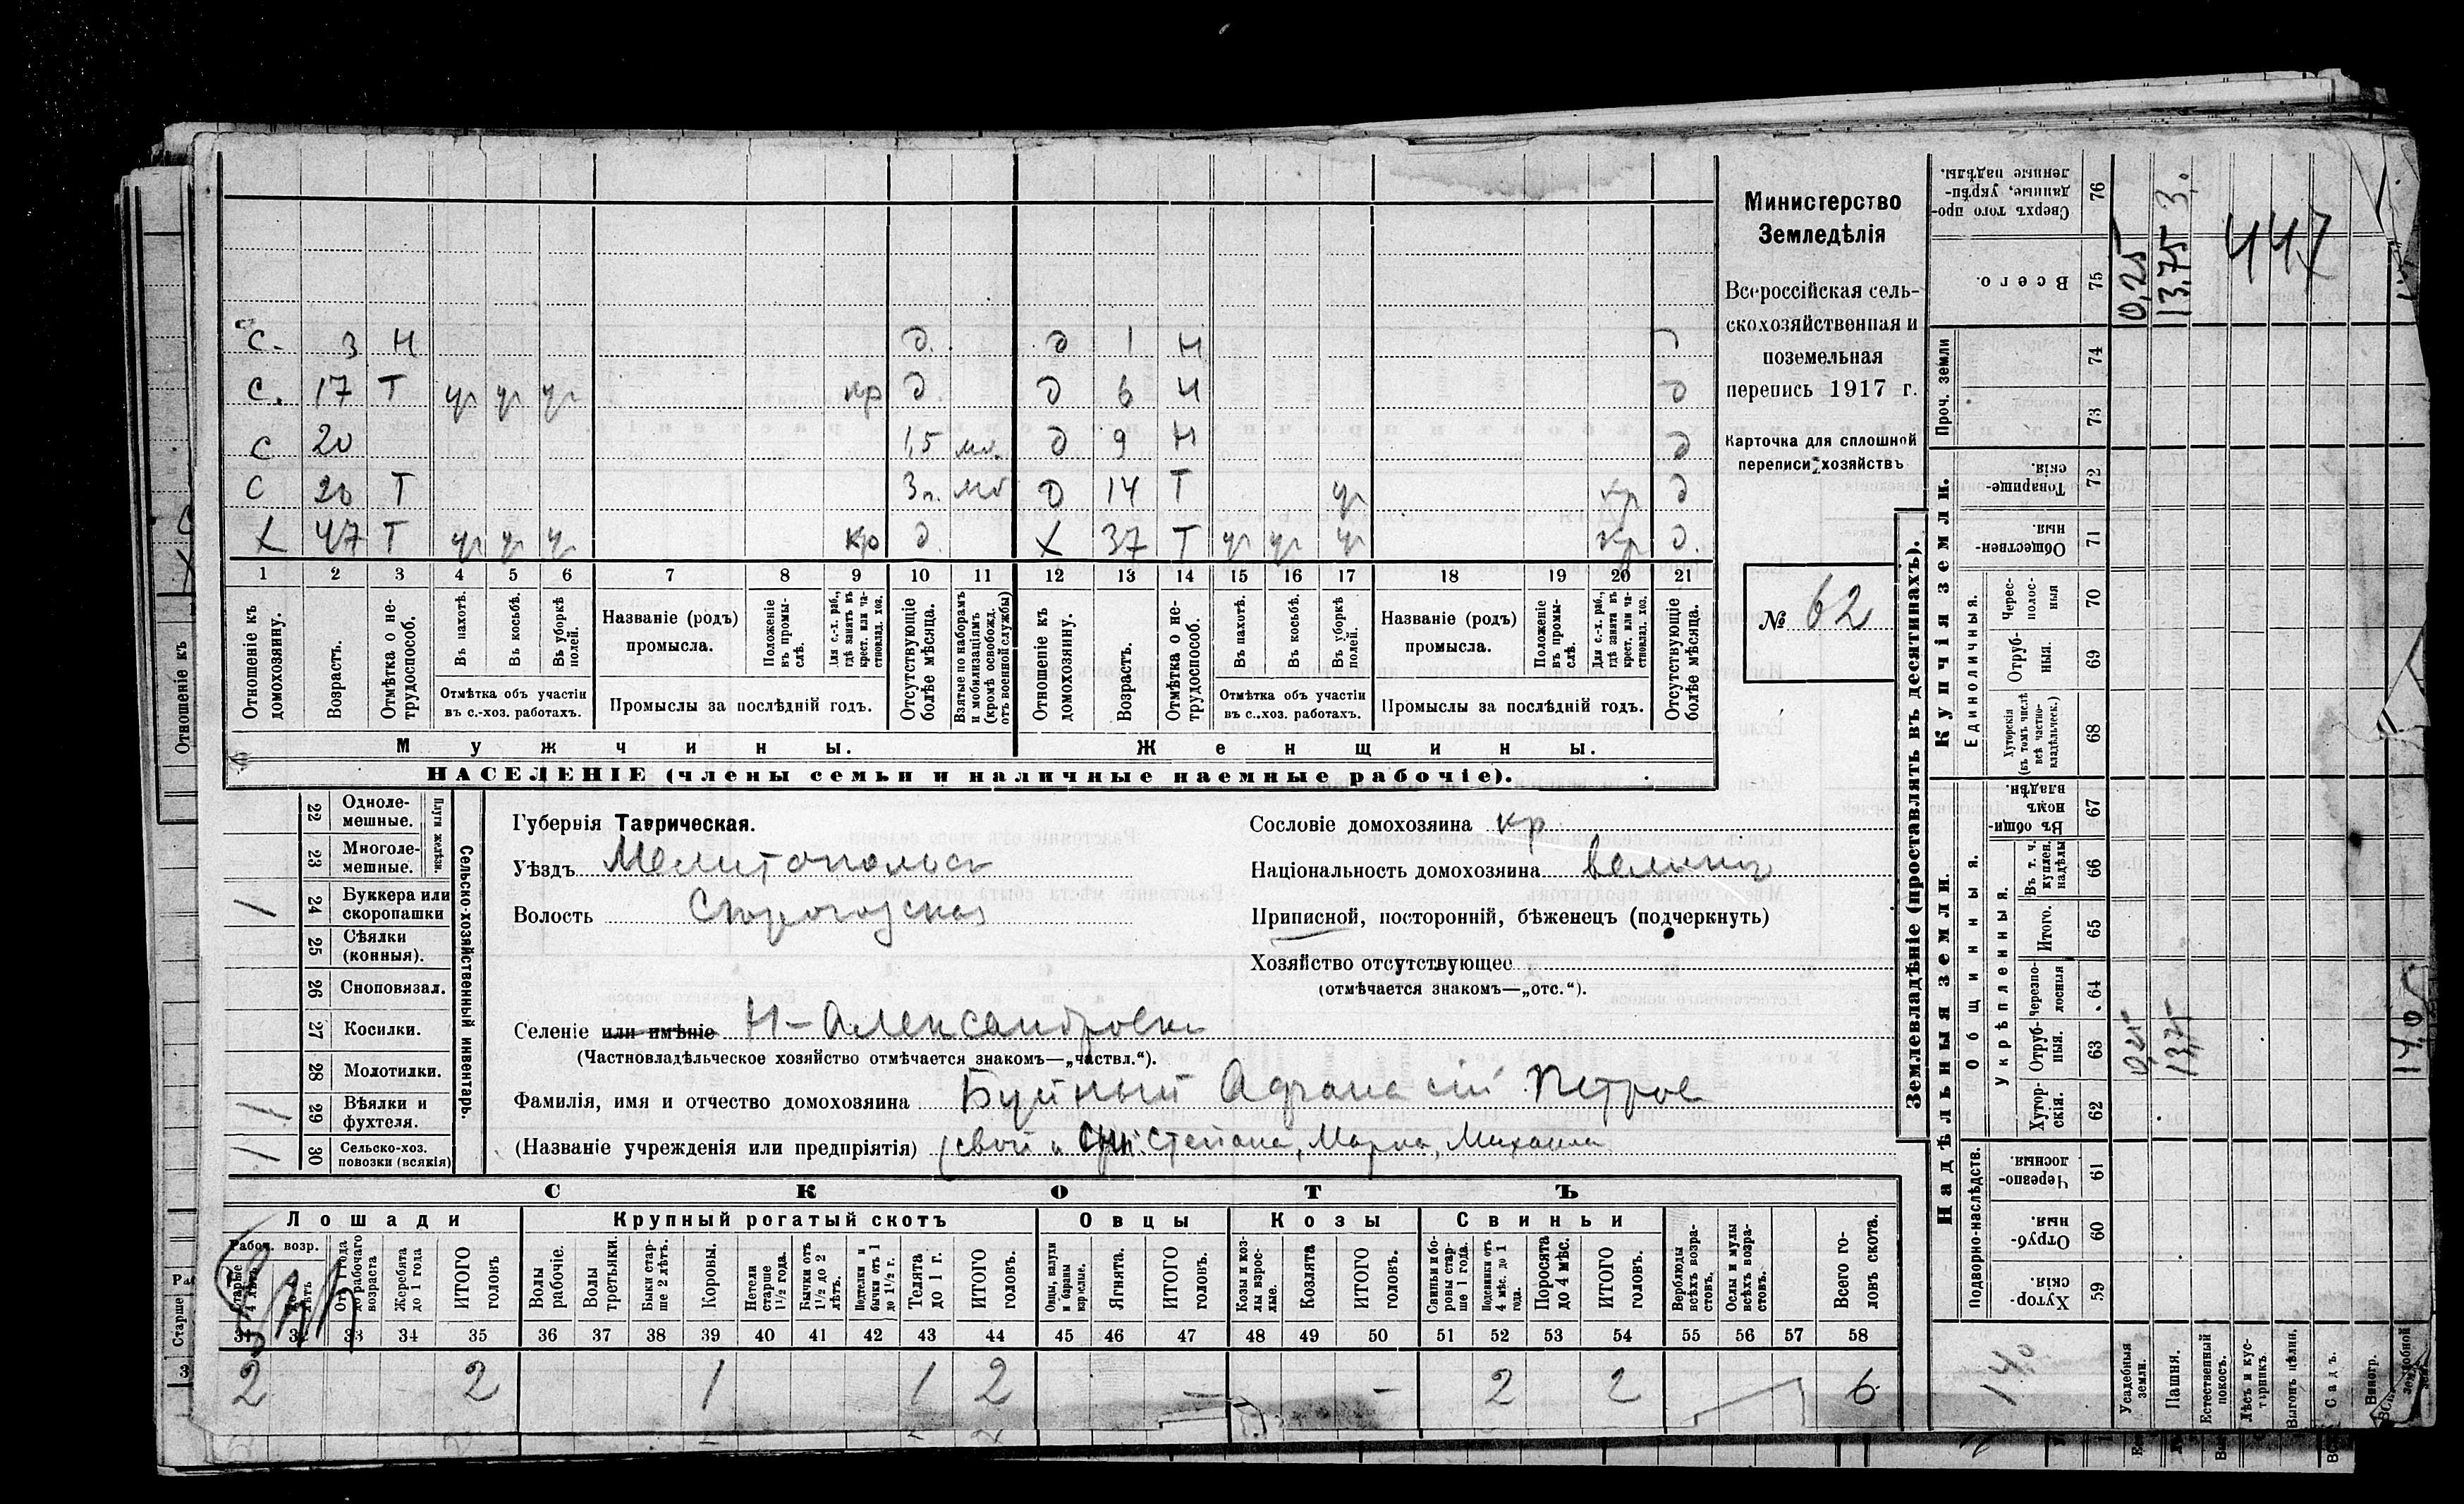 С. 3 Н д. д 1 Н
С. 17 Т уч уч уч кр д д 6 Н д
С 20 1,5 мб. д 9 Н д
С 20 Т 3 г. мб д 14 Т уч кр д
Х 47 Т уч уч уч кр д. Х 37 Т уч уч уч кр д.
1 2 3 4 5 6 7 8 9 10 11 12 13 14 15 16 17 18 19 20 21
Отношеніе къ домохозяину.
Возрастъ.
Отмѣтка о нетрудоспособ.
Въ пахотѣ.
Въ косьбѣ.
Въ уборкѣ полей.
Отмѣтка объ участіи
въ с.-хоз. работахъ.
Названіе (родъ)
промысла.
Положеніе въ промыслѣ.
Для с.-х. раб., гдѣ занятъ въ крест. или частновлад. хоз.
Промыслы за послѣдній годъ.
Отсутствующіе болѣе мѣсяца.
Взятые по наборамъ и мобилизаціямъ (кромѣ освобожд. отъ военной службы)
Отношеніе къ домохозяину.
Возрастъ.
Отмѣтка о нетрудоспособ.
Въ пахотѣ.
Въ косьбѣ.
Въ уборкѣ полей.
Отмѣтка объ участіи
въ с.-хоз. работахъ.
Названіе (родъ)
промысла.
Положеніе въ промыслѣ.
Для с.-х. раб., гдѣ занята въ крест. или частновлад. хоз.
Промыслы за послѣдній годъ.
Отсутствующіе болѣе мѣсяца.
Мужчины. Женщины.
НАСЕЛЕНІЕ (члены семьи и наличные наемные рабочіе).
Министерство
Земледѣлія
Всероссійская сель-
скохозяйственная и
поземельная
перепись 1917 г.
Карточка для сплошной
переписи хозяйствъ
№ 62
22 Однолемешные.
23 Многолемешные.
Плуги желѣзн.
1 24 Буккера или скоропашки
25 Сѣялки (конныя).
26 Сноповязал.
27 Косилки.
28 Молотилки.
1 29 Вѣялки и фухтеля.
1 30 Сельско-хоз. повозки (всякія)
Сельско-хозяйственный инвентарь.
Губернія Таврическая.
Уѣздъ Мелитопольск
Волость
Селеніе или имѣніе Н-Александровка
(Частновладѣльческое хозяйство отмѣчается знакомъ—„частвл.“).
Фамилія, имя и отчество домохозяина Буйный Афанасій Петров
(Названіе учрежденія или предпріятія) (свой и Степана, Марка, Михаила
Сословіе домохозяина кр.
Національность домохозяина
Приписной, посторонній, бѣженецъ (подчеркнуть)
Хозяйство отсутствующее
(отмѣчается знакомъ—„отс.“).
СКОТЪ
Лошади Крупный рогатый скотъ Овцы Козы Свиньи
Рабоч. возр.
Старше 4 лѣтъ
До 4 лѣтъ
Отъ 1 года до рабочаго возраста
Жеребята до 1 года
ИТОГО головъ
Волы рабочіе.
Волы третьяки.
Быки старше 2 лѣтъ.
Коровы.
Нетели старше 1 1/2 года.
Бычки отъ 1 1/2 до 2 лѣтъ.
Подтелки и бычки отъ 1 до 1 1/2 г.
Телята до 1 г.
ИТОГО головъ.
Овцы, валухи и бараны взрослые.
Ягнята.
ИТОГО головъ.
Козы и козлы взрослые.
Козлята
ИТОГО головъ.
Свиньи и боровы старше 1 года.
Подсвинки отъ 4 мѣс. до 1 года.
Поросята до 4 мѣс.
ИТОГО головъ.
Верблюды всѣхъ возрастовъ.
Ослы и мулы всѣхъ возрастовъ.
Всего головъ скота.
31 32 33 34 35 36 37 38 39 40 41 42 43 44 45 46 47 48 49 50 51 52 53 54 55 56 57 58
2 2 1 1 2 – – 2 2 6
Землевладѣніе (проставлять въ десятинахъ).
Надѣльныя земли. Купчія земли. Проч. земли
Подворно-наслѣдств. Общинныя. Единоличныя.
Укрѣпленныя.
Хуторскія. 59
Отрубныя. 60
Черезполосныя. 61
Хуторскія. 62
Отрубныя. 63 0,25 13,75
Черезполосныя 64
Итого. 65
Въ т. ч. куплен. надѣлы 66
Въ общинномъ владѣн. 67
Хуторскія (въ томъ числѣ всѣ частновладѣльческ.) 68
Отрубныя. 69
Чересполосныя 70
Общественныя 71
Товарищескія. 72
73
74
Всего. 75 0,25 13,75
Сверхъ того проданные, укрѣпленные надѣлы. 76 3,0
447
14,0
Усадебныя земли.
Пашня.
Естественный покосъ.
Лѣсъ и кустарникъ.
Выгонъ цѣлин.
Садъ.
Виногр.
14,0